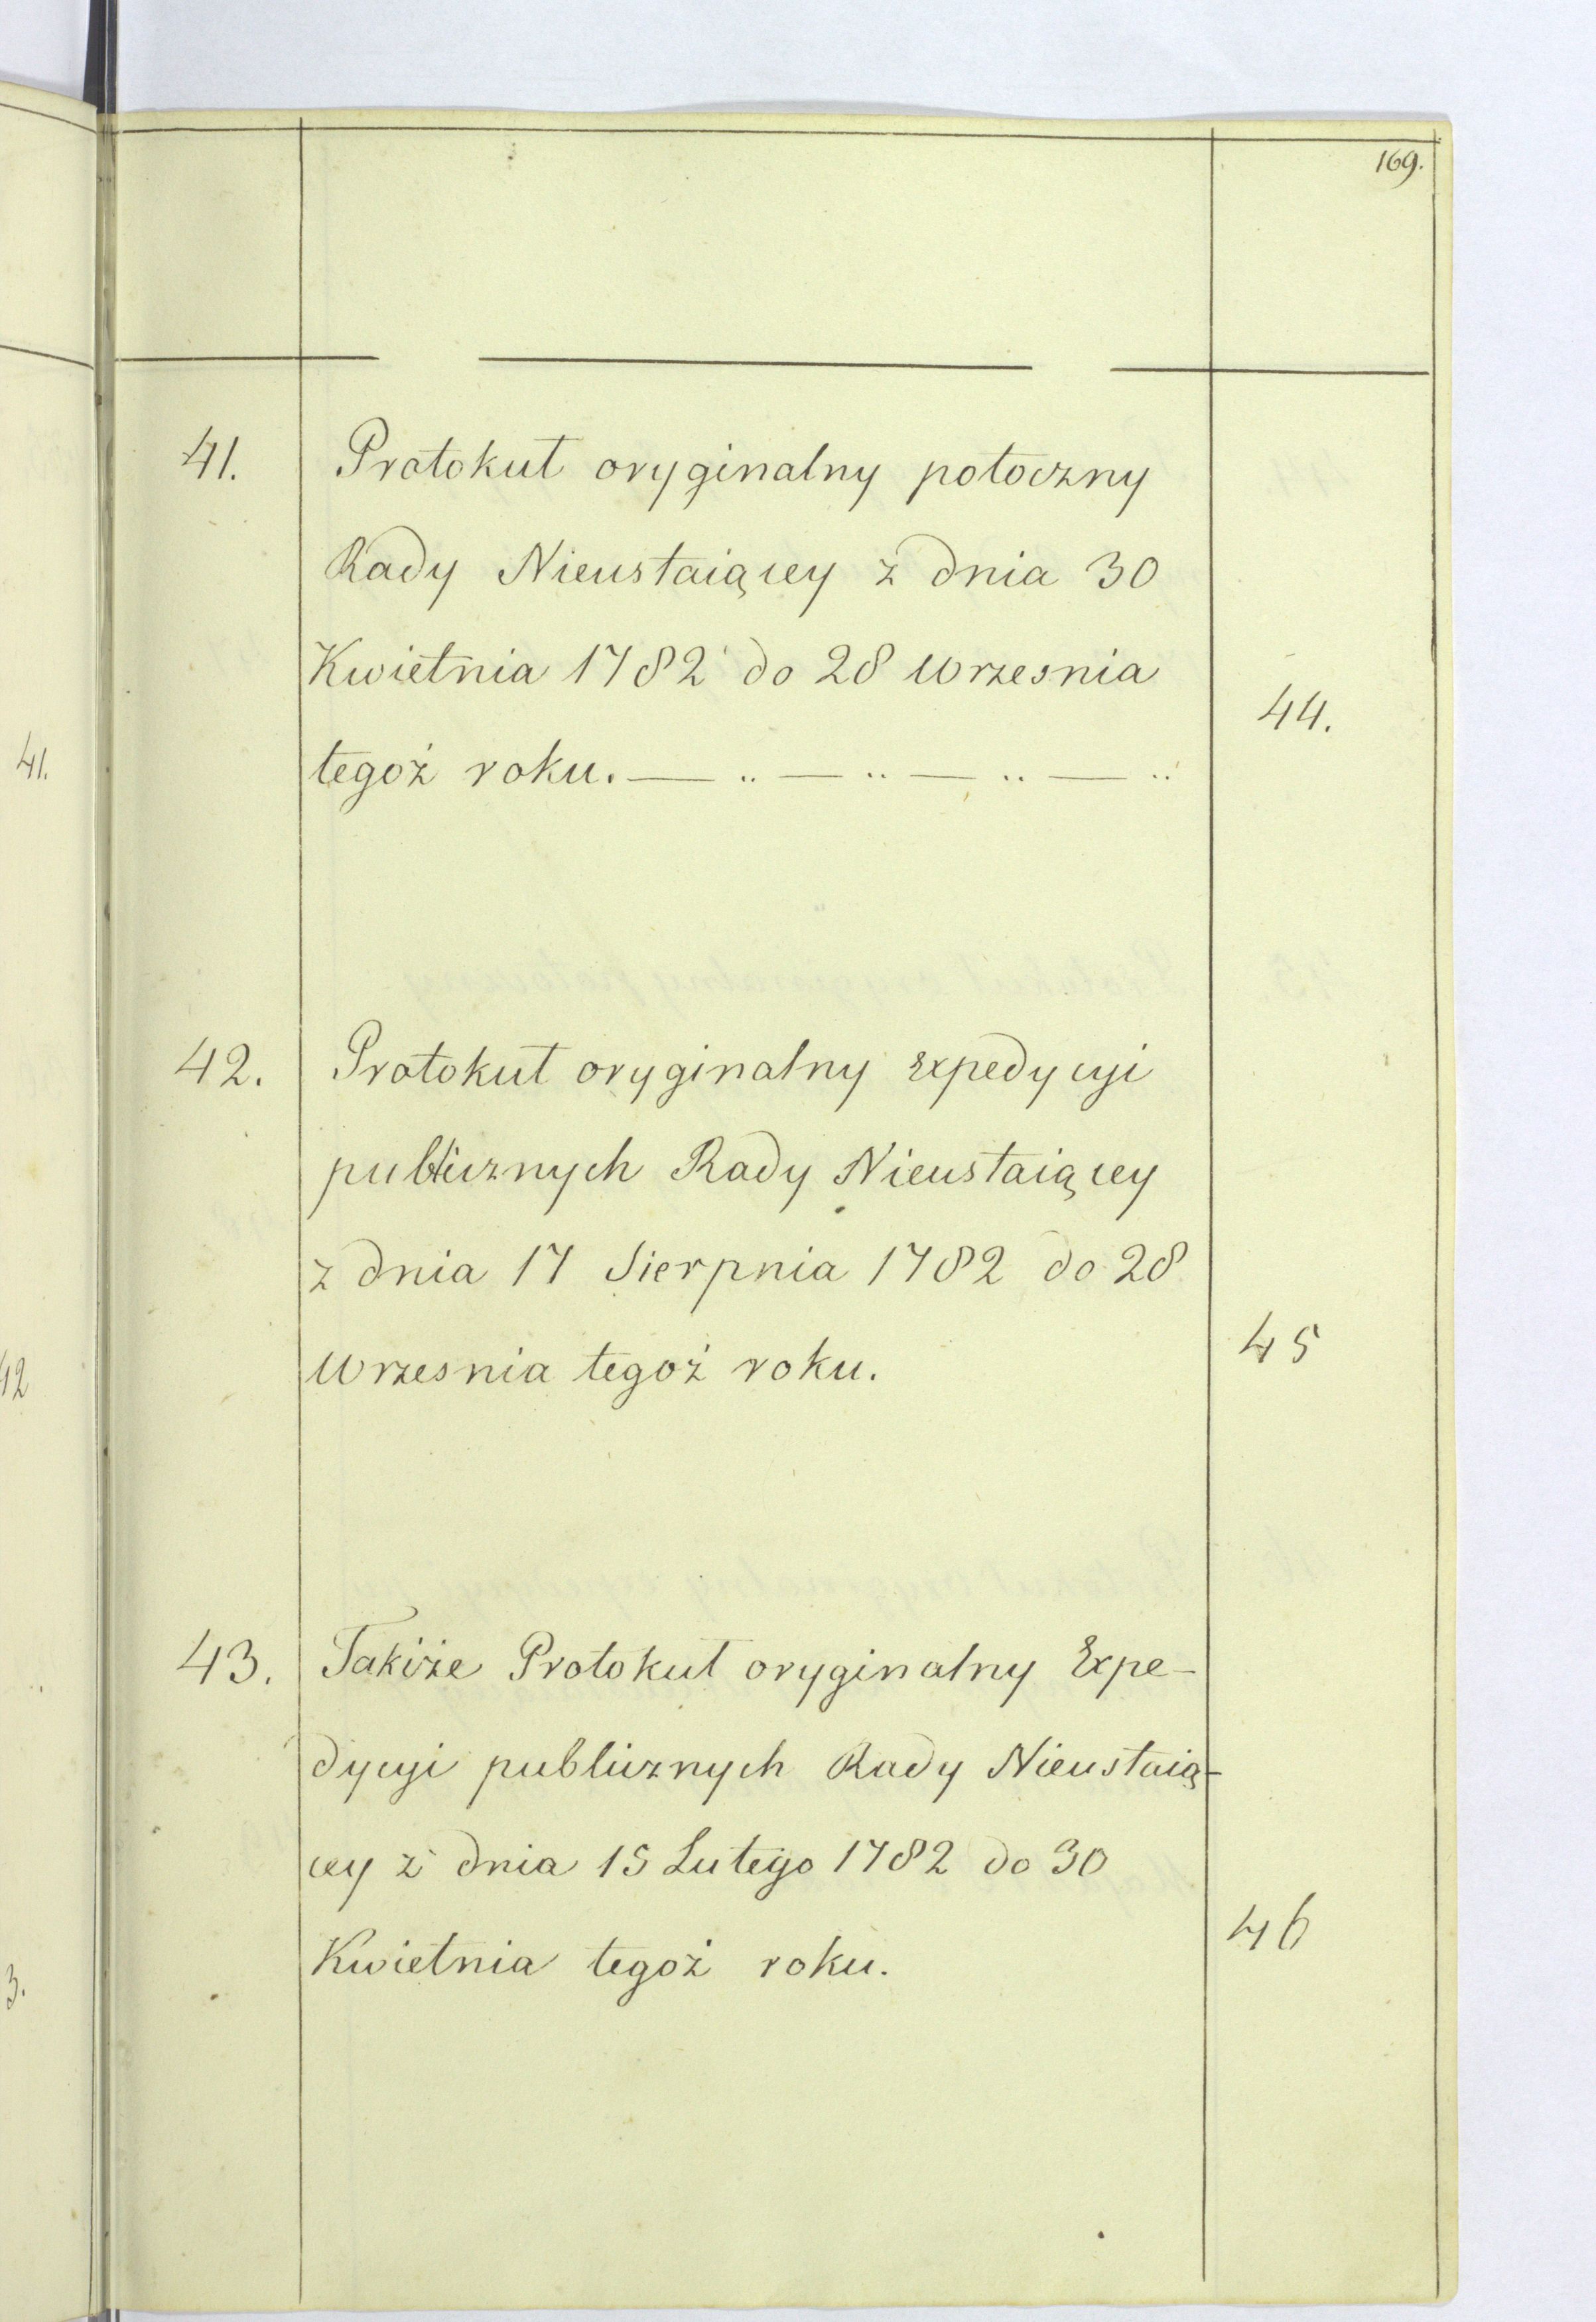 169.
41. Protokuł oryginalny potoczny
Rady Nieustaiącey z dnia 30
Kwietnia 1782 do 28 Wrzesnia
44.
tegoż roku. — .. — .. — .. — ..
42. Protokuł oryginalny Expedycyi
publicznych Rady Nieustaiącey
z dnia 17 Sierpnia 1782 do 28
Wrzesnia tegoż roku. 45
43. Takiże Protokuł oryginalny Expe-
dycyi publicznych Rady Nieustaią-
cey z dnia 15 Lutego 1782 do 30
Kwietnia tegoż roku. 46
41.
42
3.